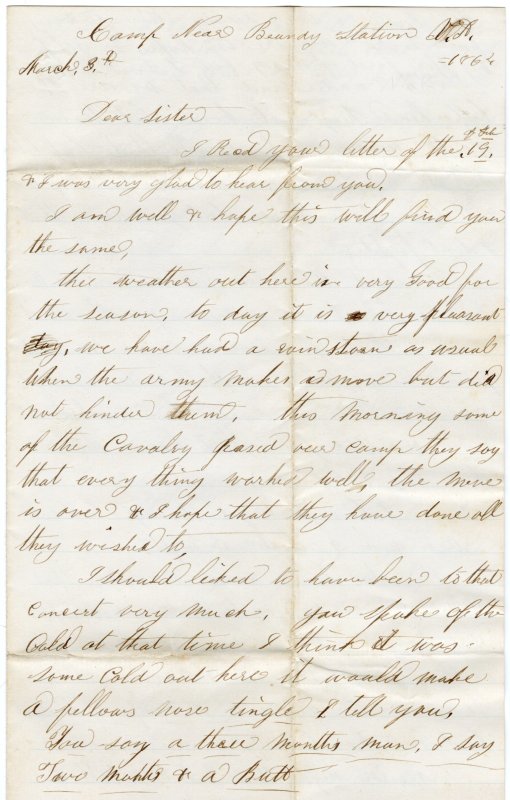 Camp Near Brandy Station VA.
March, 3.d -1864
Dear Sister
I Recd your letter of the Feb 19.
& I was very glad to hear from you.
I am well & hope this will find you
the same,
the weather out here is very Good for
the season, to day it is very pleasant
day, we have had a rain storm as usual
when the army makes a move but did
not hinder them. this morning some
of the Cavalry passed our camp they say
that every thing worked well, the move
is over & I hope that they have done all
they wished to,
I should liked to have been to that
concert very much. you spoke of the
Cold at that time I think it was
some Cold out here it would make
a fellows nose tingle I tell you,
You say a three months man, I say
Two months & a Butt